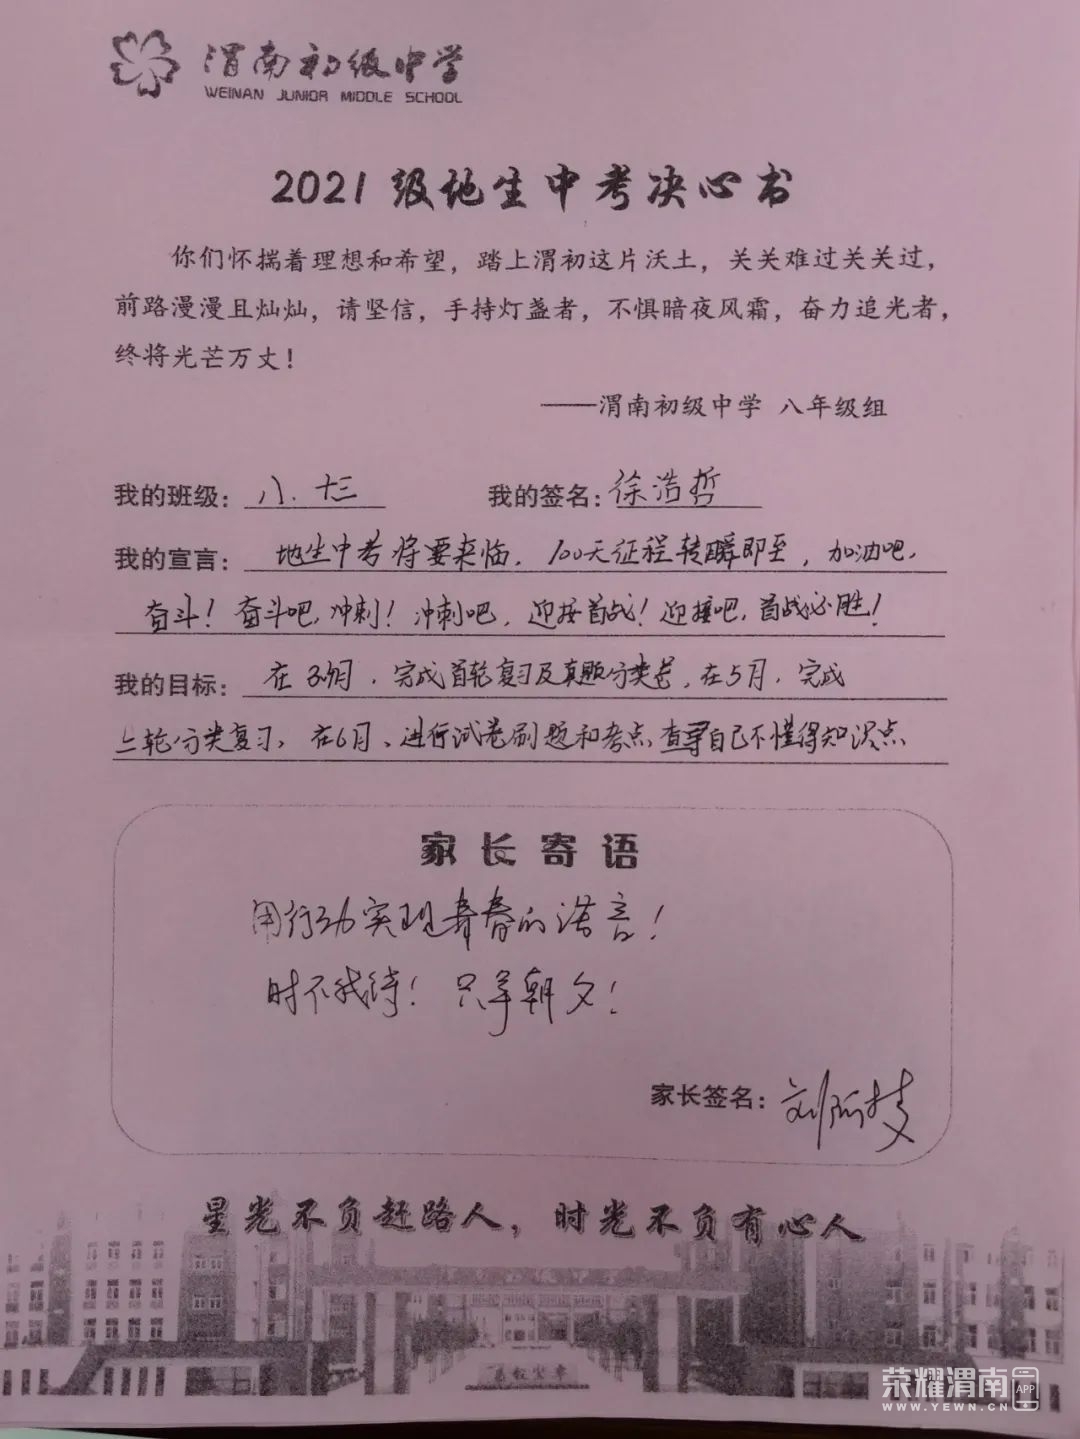 渭南初级中学
WEINAN JUNIOR MIDDLE SCHOOL
2021级地生中考决心书
你们怀揣着理想和希望，踏上渭初这片沃土，关关难过关关过，
前路漫漫且灿灿，请坚信，手持灯盏者，不惧暗夜风霜，奋力追光者，
终将光芒万丈！
——渭南初级中学 八年级组
我的班级：八.十三 我的签名：徐浩哲
我的宣言：地生中考将要来临，100天征程转瞬即至，加油吧，
奋斗！奋斗吧，冲刺！冲刺吧，迎接首战！迎接吧，首战必胜！
我的目标：在3月，完成首轮复习及真题分类卷，在5月，完成
二轮分类复习，在6月、进行试卷刷题和考点，查寻自己不懂得知识点
家长寄语
用行动实现青春的诺言！
时不我待！只争朝夕！
家长签名：刘
星光不负赶路人，时光不负有心人
荣耀渭南
APP
WWW.YEWN.CN